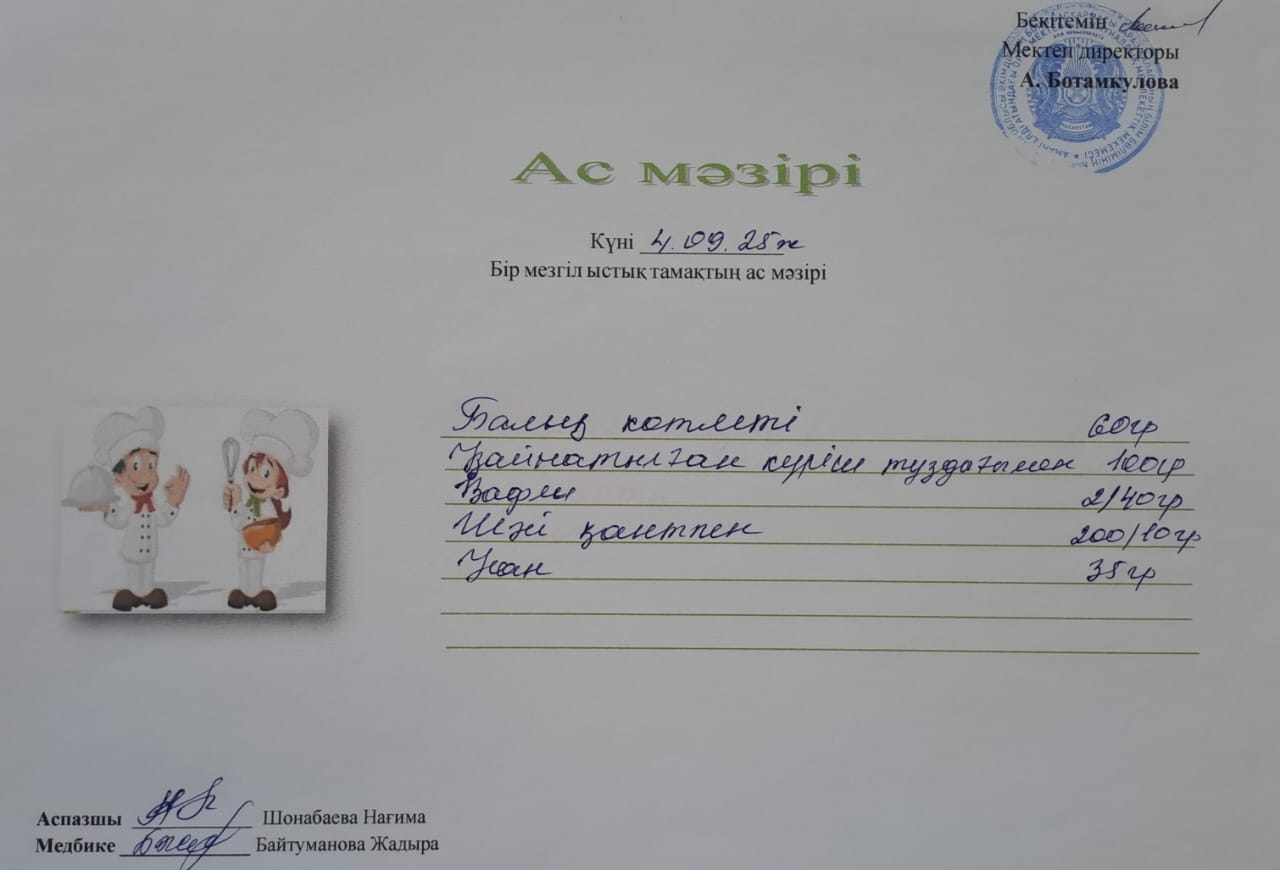 Бекітемін
Мектеп директоры
А. Ботамкулова
Ас мәзірі
Күні 4.09.25ж
Бір мезгіл ыстық тамақтың ас мәзірі
Балық котлеті 60гр
Қайнатылған күріш тұздағымен 100гр
Вафли 2/40гр
Шәй қантпен 200/10гр
Нан 35гр
Аспазшы Шонабаева Нағима
Медбике Байтуманова Жадыра